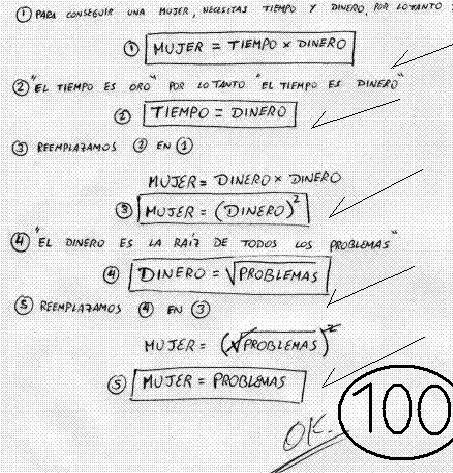 ① PARA CONSEGUIR UNA MUJER, NECESITAS TIEMPO Y DINERO, POR LO TANTO :
① MUJER = TIEMPO x DINERO
② "EL TIEMPO ES ORO" POR LO TANTO "EL TIEMPO ES DINERO"
② TIEMPO = DINERO
③ REEMPLAZAMOS ② EN ①
MUJER = DINERO x DINERO
③ MUJER = (DINERO)²
④ "EL DINERO ES LA RAÍZ DE TODOS LOS PROBLEMAS"
④ DINERO = √PROBLEMAS
⑤ REEMPLAZAMOS ④ EN ③
MUJER = (√PROBLEMAS)²
⑤ MUJER = PROBLEMAS
OK.
100